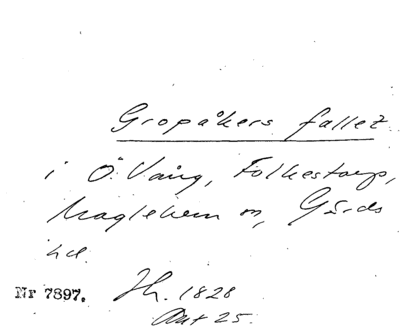 Gropåkers fallet
i Ö. Vång, Folkestorp,
Maglehem sn, Gärds
hd.
Nr 7897. Jh. 1828
Akt 25.